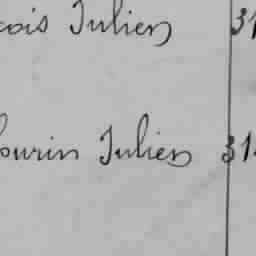 çois Julien 31
ourin Julien 31